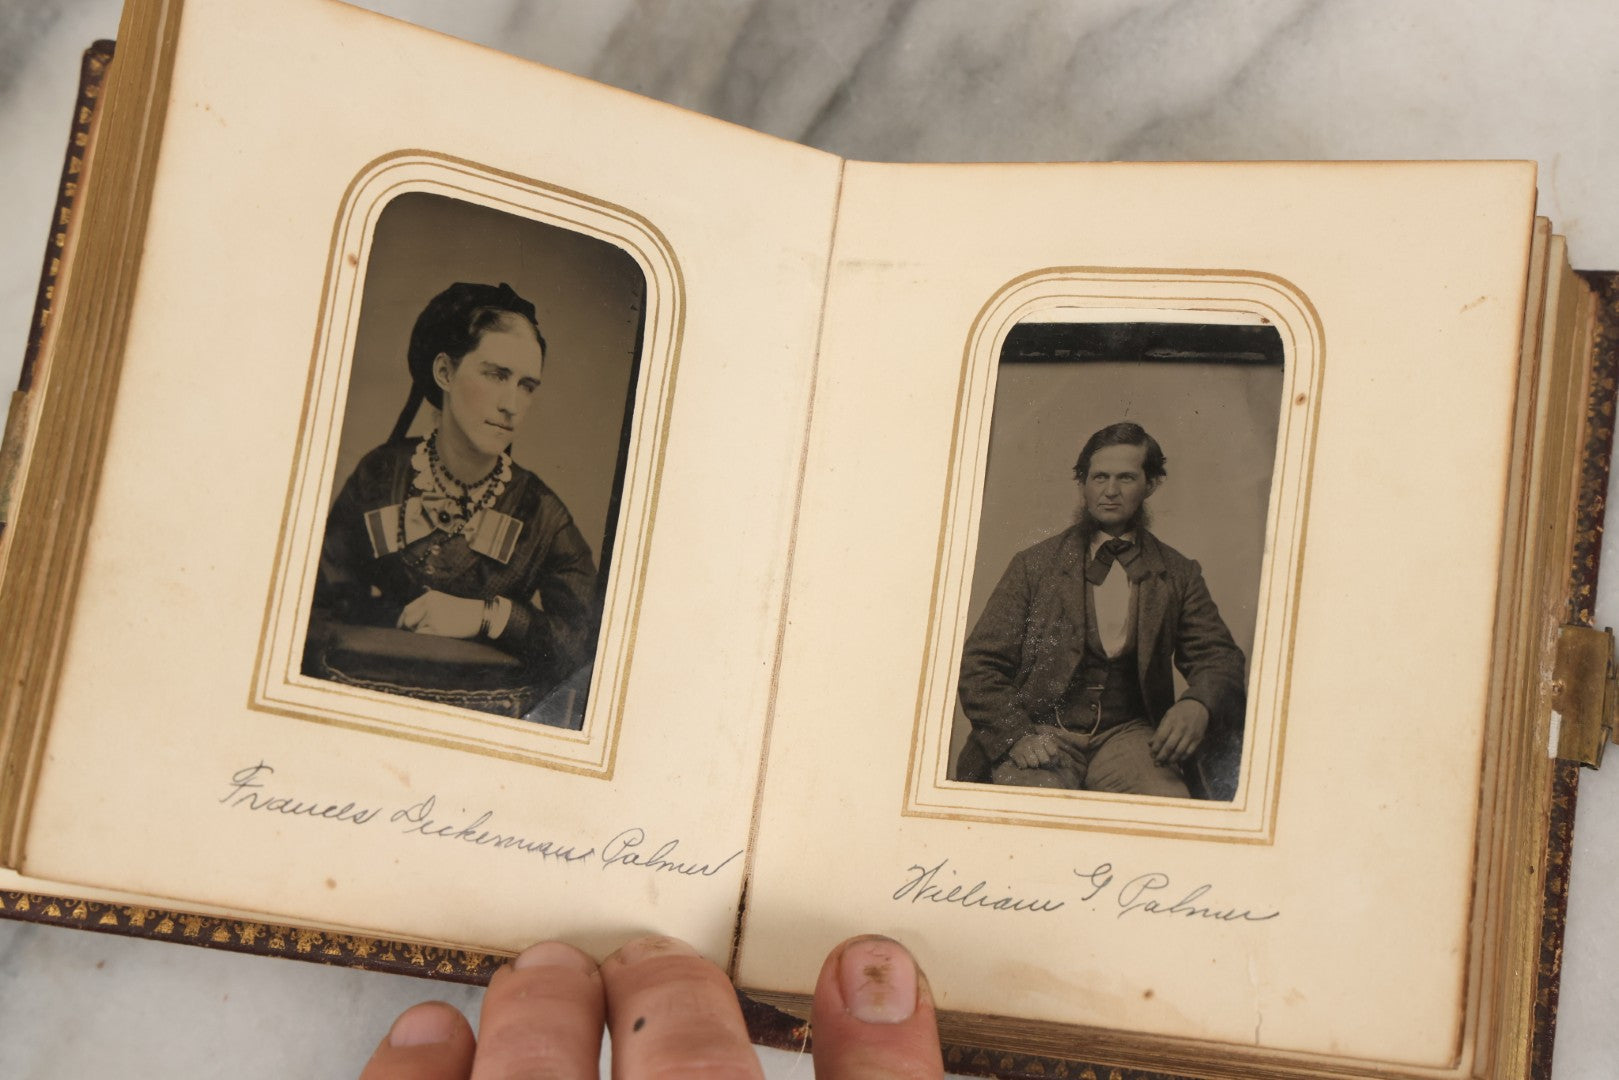 Frances Dickerman Palmer
William G. Palmer